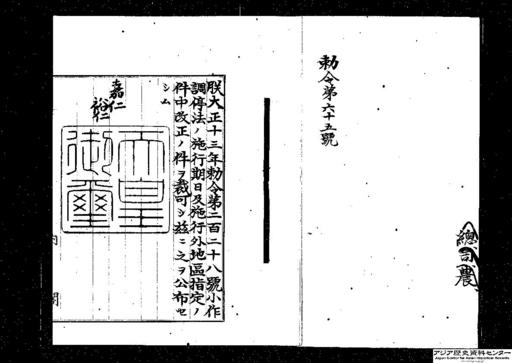 勅令第六十五號
總司農
朕大正十三年勅令第二百二十八號小作
調停法ノ施行期日及施行外地區指定ノ
件中改正ノ件ヲ裁可シ玆ニ之ヲ公布セ
シム
嘉仁
裕仁
天皇
御璽
内閣
アジア歴史資料センター
Japan Center for Asian Historical Records